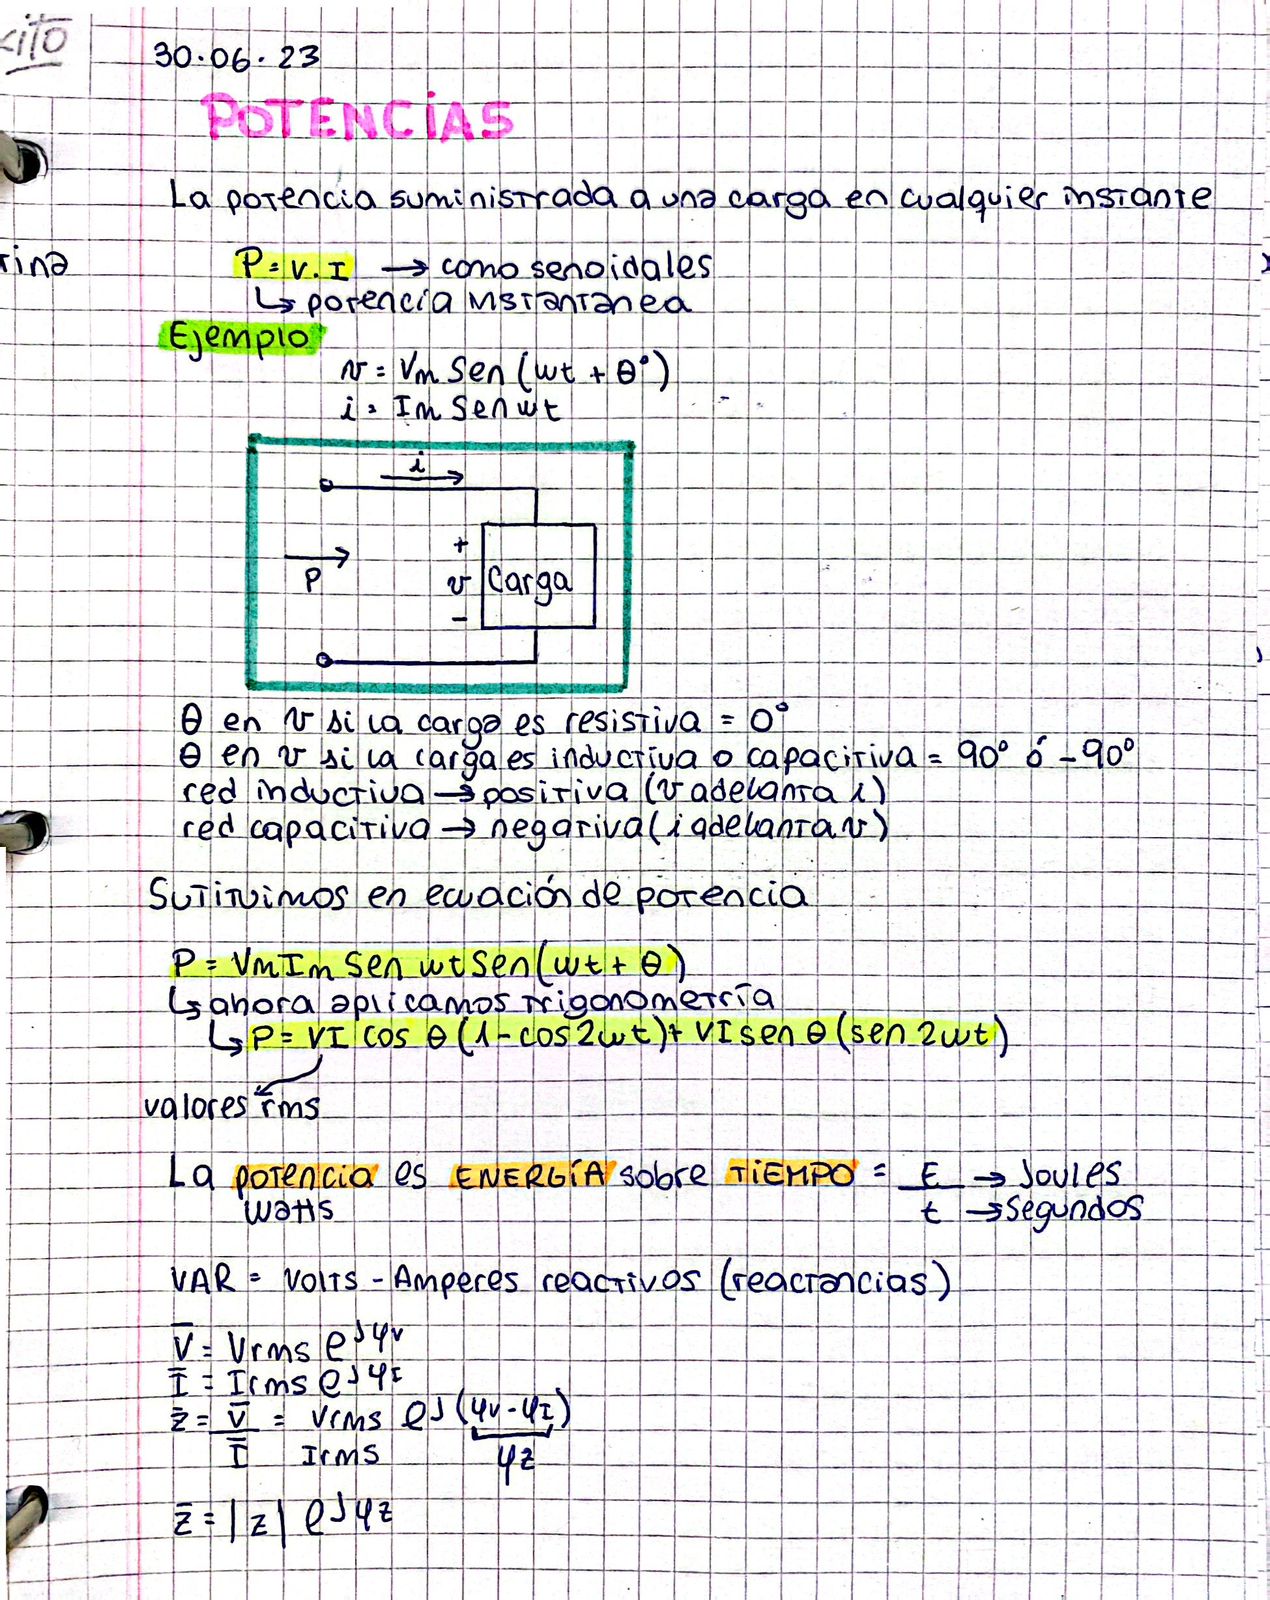 xito
30.06.23
POTENCIAS
La potencia suministrada a una carga en cualquier instante
tina
P = V. I → como senoidales
↳ potencia instantanea
Ejemplo
v = Vm Sen (wt + θ°)
i = Im Sen wt
i
+
P
v
Carga
-
θ en v si la carga es resistiva = 0°
θ en v si la carga es inductiva o capacitiva = 90° ó -90°
red inductiva → positiva (v adelanta i)
red capacitiva → negativa (i adelanta v)
Sutituimos en ecuación de potencia
P = VmIm Sen wt Sen (wt + θ)
↳ ahora aplicamos trigonometría
↳ P = VI cos θ (1 - cos 2wt) + VI sen θ (sen 2wt)
valores rms
La potencia es ENERGÍA sobre TIEMPO = E → Joules
Watts t → Segundos
VAR = Volts - Amperes reactivos (reactancias)
V̅ = Vrms e^jφv
I̅ = Irms e^jφI
z̅ = V̅ = Vrms e^j(φv - φI)
I̅ Irms φz
z̅ = |z| e^jφz